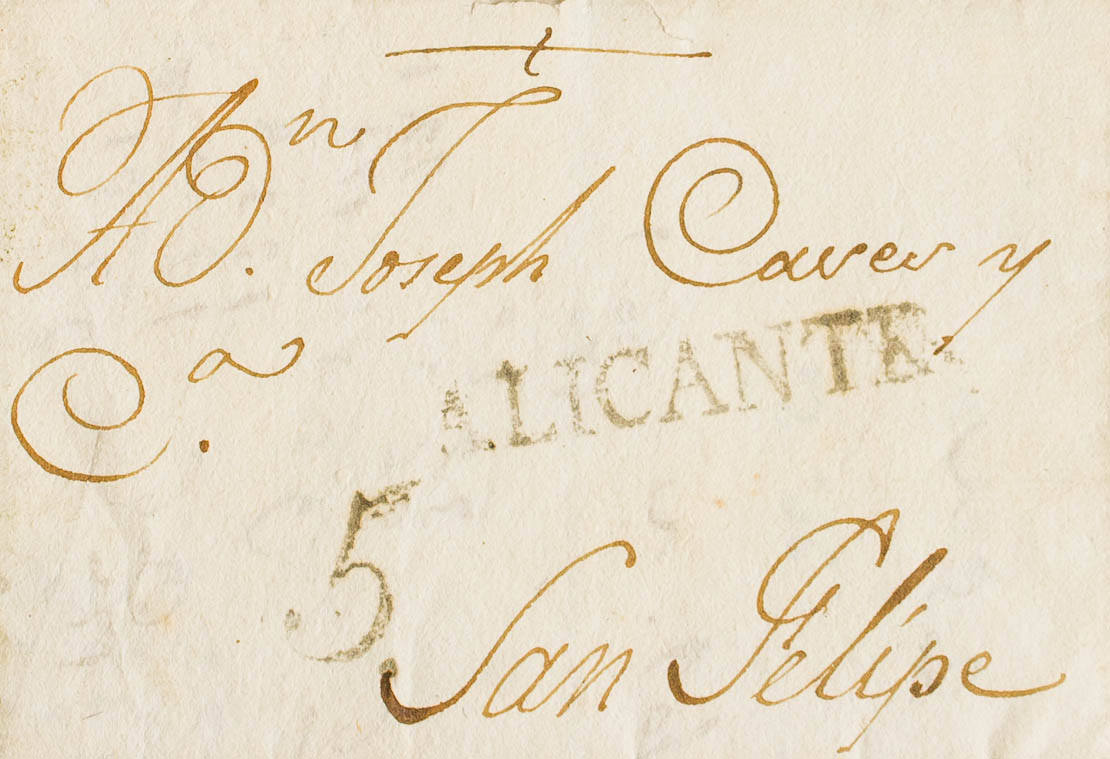 A D.ⁿ Joseph Caver y
C.ª
ALICANTE
5
San Felipe